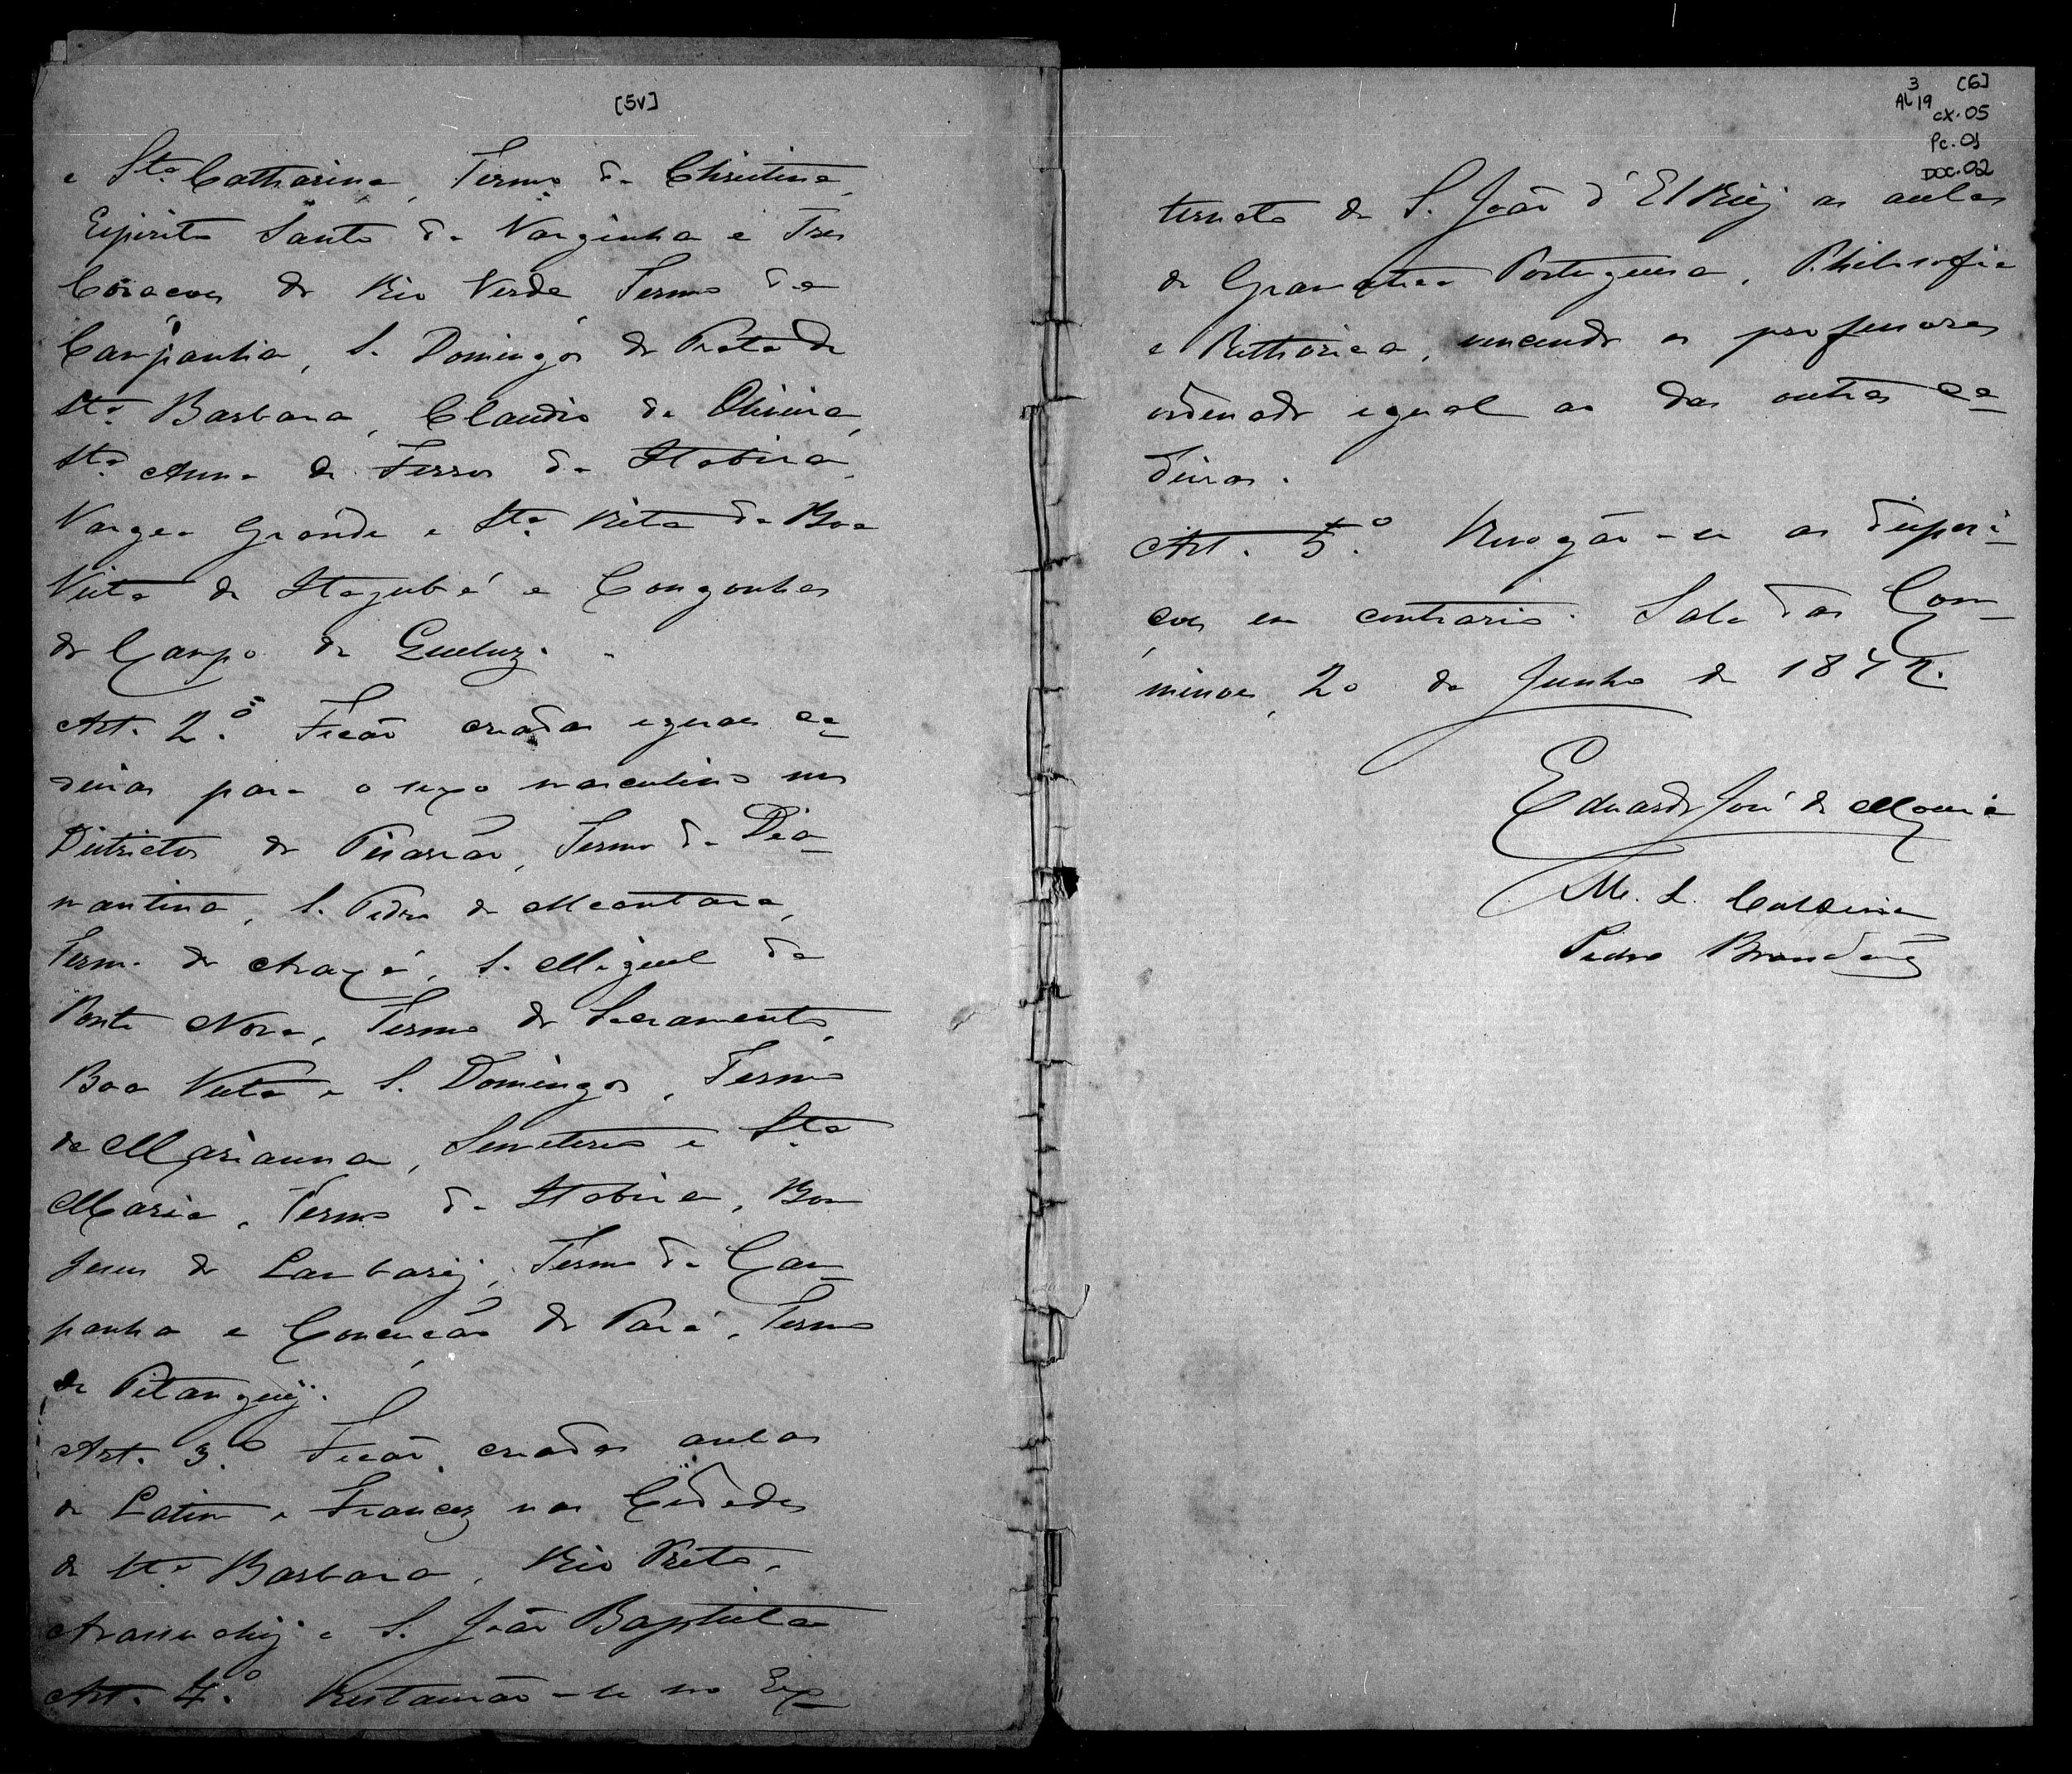 [5v]
e Sta Catharina, Termo da Christina,
Espirito Santo da Varginha e Tres
Corações do Rio Verde, Termo da
Campanha, S. Domingos do Prata de
Sta Barbara, Claudio da Oliveira,
Sta Anna de Ferros da Itabira,
Vargea Grande e Sta Rita da Boa
Vista de Itajubá e Congonhas
do Campo de Queluz.
Art. 2.º Ficão creadas eguaes ca-
deiras para o sexo masculino nos
Districtos de Pissarrão, Termo da Dia-
mantina, S. Pedro de Alcantara,
Termo do Araxá, S. Miguel da
Ponte Nova, Termo do Sacramento,
Boa Vista e S. Domingos, Termo
de Marianna, Semiterio e Sta
Maria, Termo da Itabira, Bom
Jesus do Lambary, Termo da Cam-
panha e Conceição do Pará, Termo
de Pitanguÿ.
Art. 3.º Ficão creadas aulas
de Latim e Francez nas Cidades
de Sta Barbara, Rio Preto,
Arassuahy e S. João Baptista
Art. 4.º Restaurão-se no Ex-
3 [6]
AL 19
cx. 05
Pc. 01
DOC. 02
ternato de S. João d'El Rey as aulas
de Gramatica Portuguesa, Philosofia
e Rethorica, vencendo os professores
ordenado egual ao das outras ca-
deiras.
Art. 5.º Revogão-se as disposi-
ções em contrario. Sala das Com-
missoes, 20 de Junho de 1872.
Eduardo José de Moura
M. L.
Pedro Brandão